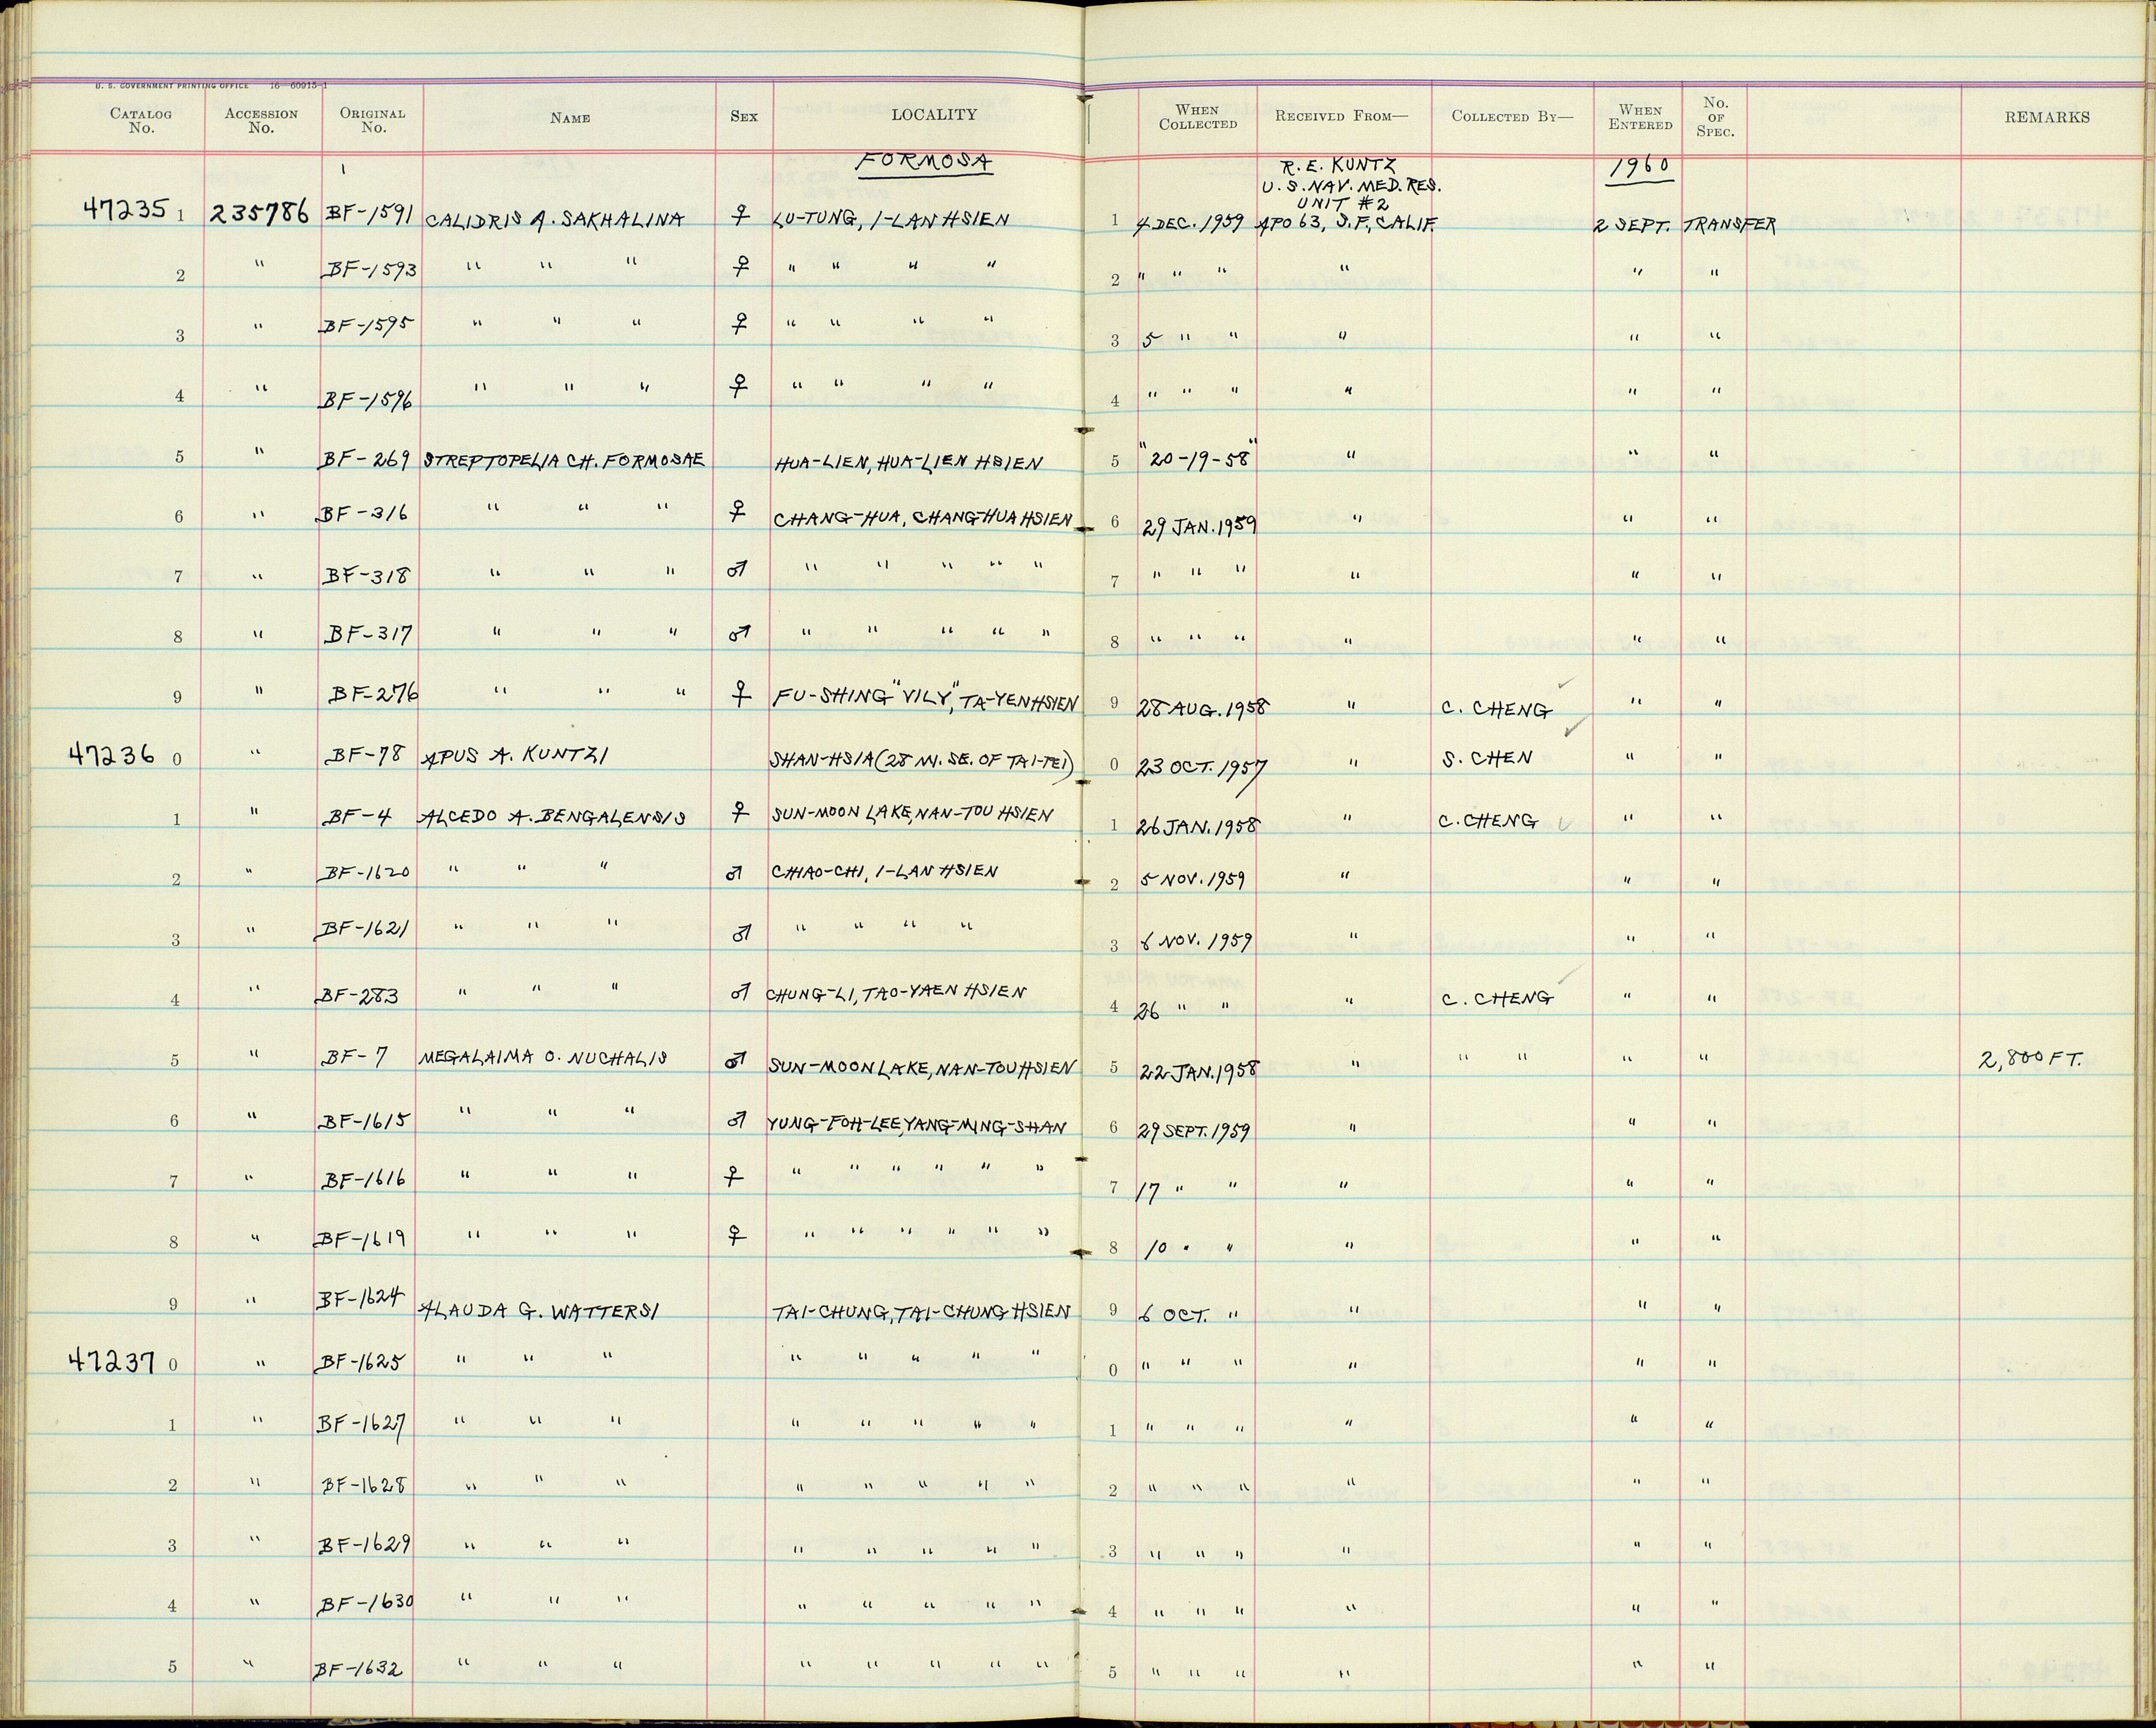 U. S. GOVERNMENT PRINTING OFFICE 16—60915-1
CATALOG No. ACCESSION No. ORIGINAL No. NAME SEX LOCALITY WHEN COLLECTED RECEIVED FROM— COLLECTED BY— WHEN ENTERED No. OF SPEC. REMARKS
FORMOSA R. E. KUNTZ 1960
U. S. NAV. MED. RES.
UNIT #2
47235 1 235786 BF-1591 CALIDRIS A. SAKHALINA ♀ LU-TUNG, I-LAN HSIEN 1 4 DEC. 1959 APO 63, S.F., CALIF. 2 SEPT. TRANSFER
2 " BF-1593 " " " ♀ " " " " 2 " " " " " "
3 " BF-1595 " " " ♀ " " " " 3 5 " " " " "
4 " BF-1596 " " " ♀ " " " " 4 " " " " " "
5 " BF-269 STREPTOPELIA CH. FORMOSAE HUA-LIEN, HUA-LIEN HSIEN 5 "20-19-58" " " "
6 " BF-316 " " " ♀ CHANG-HUA, CHANG-HUA HSIEN 6 29 JAN. 1959 " " "
7 " BF-318 " " " ♂ " " " " " 7 " " " " " "
8 " BF-317 " " " ♂ " " " " " 8 " " " " " "
9 " BF-276 " " " ♀ FU-SHING "VILY", TA-YEN HSIEN 9 28 AUG. 1958 " C. CHENG ✓ " "
47236 0 " BF-78 APUS A. KUNTZI SHAN-HSIA (28 M. SE. OF TAI-PEI) 0 23 OCT. 1957 " S. CHEN ✓ " "
1 " BF-4 ALCEDO A. BENGALENSIS ♀ SUN-MOON LAKE, NAN-TOU HSIEN 1 26 JAN. 1958 " C. CHENG ✓ " "
2 " BF-1620 " " " ♂ CHIAO-CHI, I-LAN HSIEN 2 5 NOV. 1959 " " "
3 " BF-1621 " " " ♂ " " " " 3 6 NOV. 1959 " " "
4 " BF-283 " " " ♂ CHUNG-LI, TAO-YAEN HSIEN 4 26 " " " C. CHENG ✓ " "
5 " BF-7 MEGALAIMA O. NUCHALIS ♂ SUN-MOON LAKE, NAN-TOU HSIEN 5 22 JAN. 1958 " " " " " 2,800 FT.
6 " BF-1615 " " " ♂ YUNG-FOH-LEE, YANG-MING-SHAN 6 29 SEPT. 1959 " " "
7 " BF-1616 " " " ♀ " " " " " " 7 17 " " " " "
8 " BF-1619 " " " ♀ " " " " " " 8 10 " " " " "
9 " BF-1624 ALAUDA G. WATTERSI TAI-CHUNG, TAI-CHUNG HSIEN 9 6 OCT. " " " "
47237 0 " BF-1625 " " " " " " " " 0 " " " " " "
1 " BF-1627 " " " " " " " " 1 " " " " " "
2 " BF-1628 " " " " " " " " 2 " " " " " "
3 " BF-1629 " " " " " " " " 3 " " " " " "
4 " BF-1630 " " " " " " " " 4 " " " " " "
5 " BF-1632 " " " " " " " " 5 " " " " " "